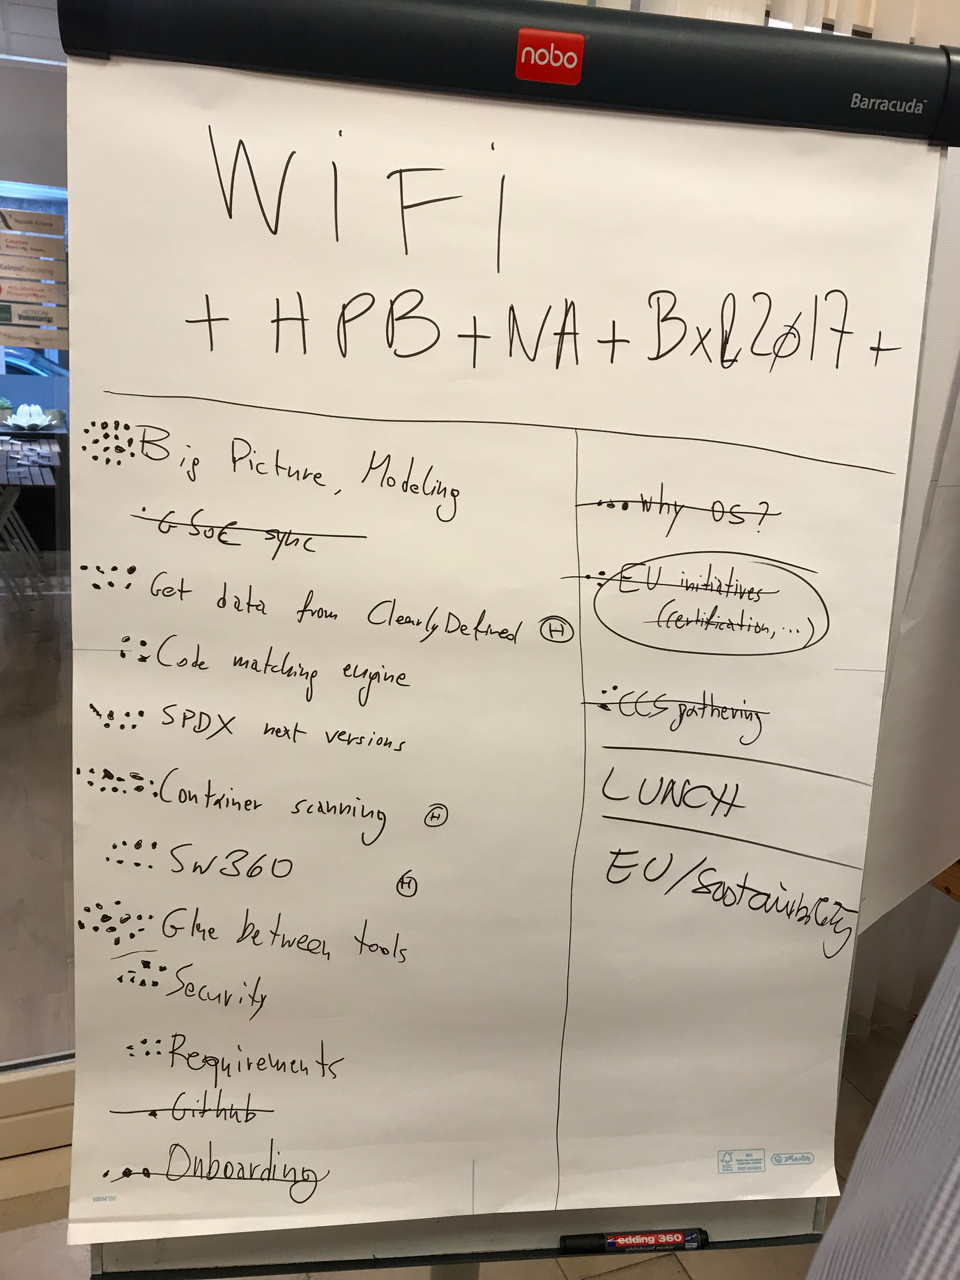 nobo
Barracuda
WiFi
+ HPB + NA + BxL2017 +
Big Picture, Modeling
GSoC sync
Get data from ClearlyDefined H
Code matching engine
SPDX next versions
Container scanning H
SW360 H
Glue between tools
Security
Requirements
Github
Onboarding
Why OS?
EU initiatives
(certification, ...)
CCS gathering
LUNCH
EU/Sustainability
edding 360
whiteboard marker